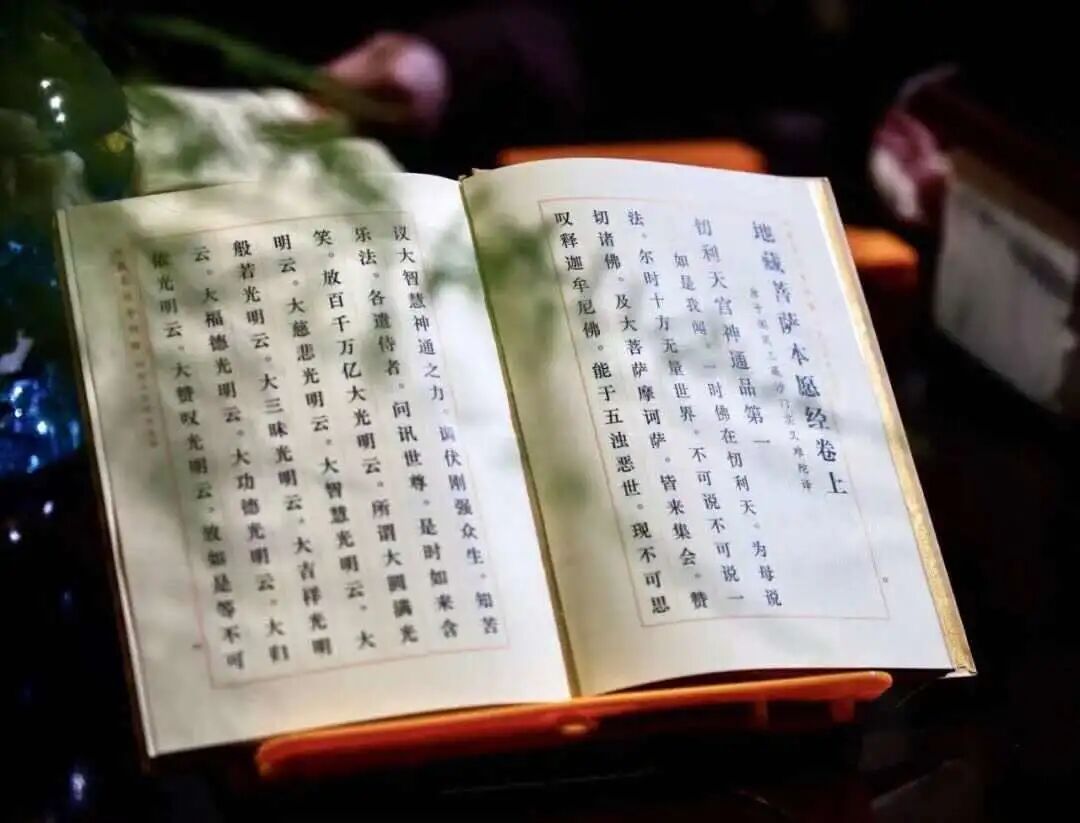 地藏菩萨本愿经卷上
唐于阗国三藏沙门实叉难陀译
忉利天宫神通品第一
如是我闻。一时佛在忉利天。为母说
法。尔时十方无量世界。不可说不可说一
切诸佛。及大菩萨摩诃萨。皆来集会。赞
叹释迦牟尼佛。能于五浊恶世。现不可思
议大智慧神通之力。调伏刚强众生。知苦
乐法。各遣侍者。问讯世尊。是时如来含
笑。放百千万亿大光明云。所谓大圆满光
明云。大慈悲光明云。大智慧光明云。大
般若光明云。大三昧光明云。大吉祥光明
云。大福德光明云。大功德光明云。大归
依光明云。大赞叹光明云。放如是等不可